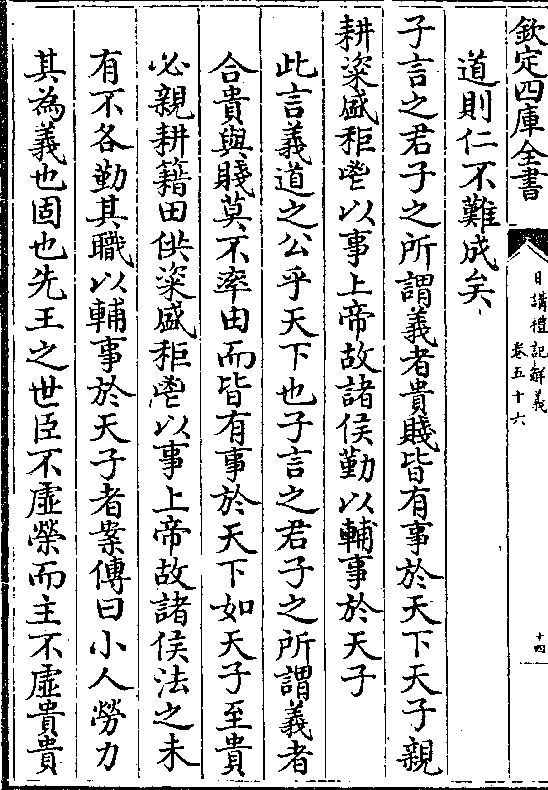 欽定四庫全書
日講禮記解義
卷五十六
十四
道則仁不難成矣
子言之君子之所謂義者貴賤皆有事於天下天子親
耕粢盛秬鬯以事上帝故諸侯勤以輔事於天子
此言義道之公乎天下也子言之君子之所謂義者
合貴與賤莫不率由而皆有事於天下如天子至貴
必親耕籍田供粢盛秬鬯以事上帝故諸侯法之未
有不各勤其職以輔事於天子者案傳曰小人勞力
其為義也固也先王之世臣不虛榮而主不虛貴貴